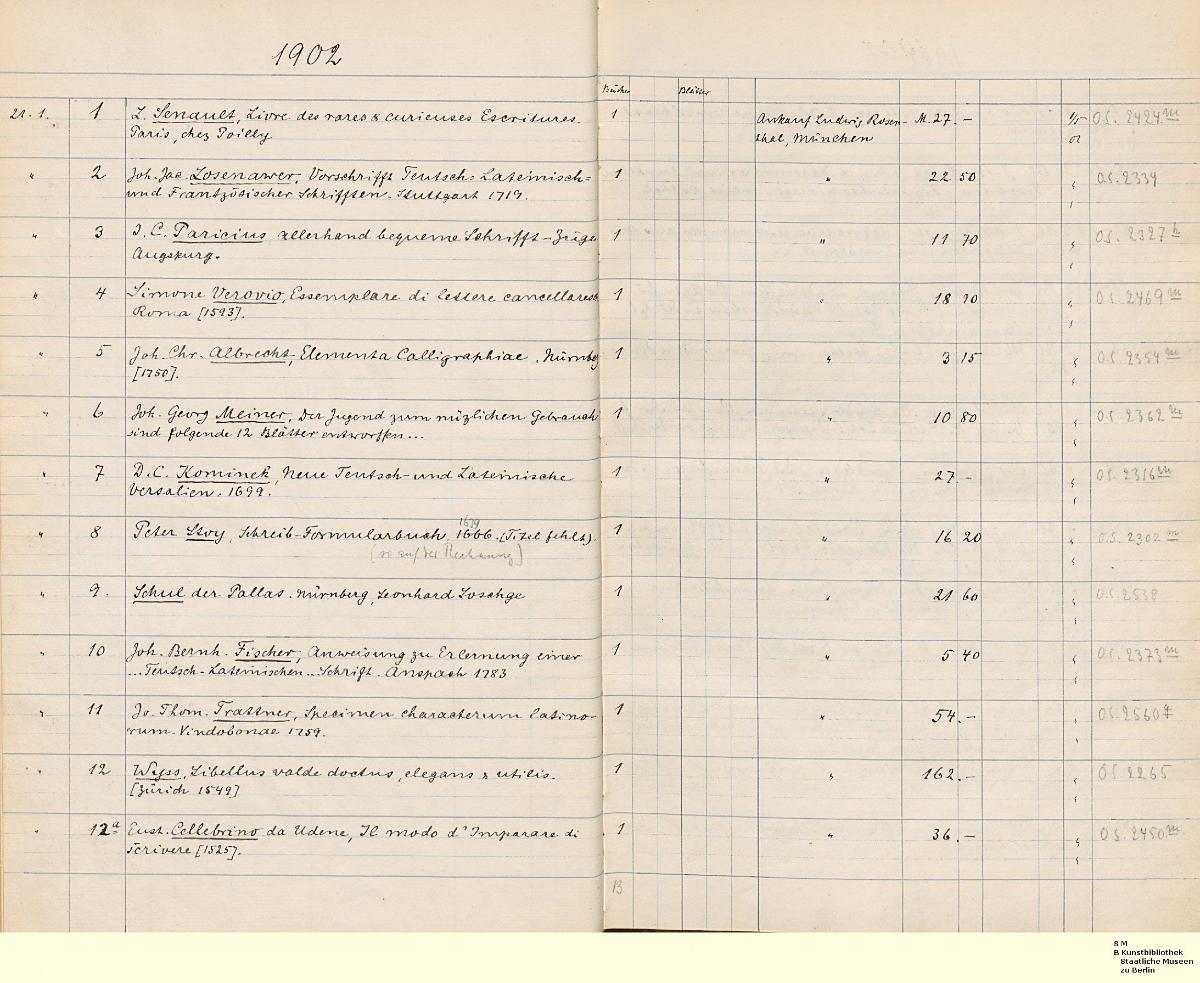 1902
Bücher Blätter
21. 1. 1 L. Senault, Livre des rares & curieuses Escritures. 1 Ankauf Ludwig Rosen- M. 27. – OS. 2424 m
Paris, chez Poilly thal, München
" 2 Joh. Jac. Losenawer, Vorschrifft Teutsch= Lateinisch= 1 " 22 50 OS. 2334
und Frantzösischer Schrifften. Stuttgart 1719.
" 3 J. C. Paricius allerhand bequeme Schrifft-Züge 1 " 11 70 OS. 2327
Augspurg.
" 4 Simone Verovio, Essemplare di lettere cancellaresch 1 " OS. 2469 m
Roma [1593].
" 5 Joh. Chr. Albrecht, Elementa Calligraphiae. Nürnbg 1 " 3 15 OS. 2354 m
[1750].
" 6 Joh. Georg Meiner, Der Jugend zum nüzlichen Gebrauch 1 " 10 80 OS. 2362 m
sind folgende 12 Blätter entworffen...
" 7 D. C. Kominek, Neue Teutsch- und Lateinische 1 " 27. – OS. 2316 m
Versalien. 1699.
1659
" 8 Peter Stoy, Schreib-Formularbuch. 1666. (Titel fehlt). 1 " 16 20 OS. 2302 m
(so auf der Rechnung)
" 9. Schul der Pallas. Nürnberg, Leonhard Loschge 1 " 21 60 OS. 2538
" 10 Joh. Bernh. Fischer, Anweisung zu Erlernung einer 1 " 5 40 OS. 2373 m
...Teutsch-Lateinischen...Schrift. Anspach 1783
" 11 Jo. Thom. Trattner, Specimen characterum latino- 1 " 54. – OS. 2560
rum. Vindobonae 1759.
" 12 Wyss, Libellus valde doctus, elegans & utilis. 1 " 162. – OS. 2265
[Zürich 1549]
" 12a Eust. Cellebrino da Udene, Il modo d'Imparare di 1 " 36. – OS. 2450 m
scrivere [1525].
13
S M
B Kunstbibliothek
Staatliche Museen
zu Berlin